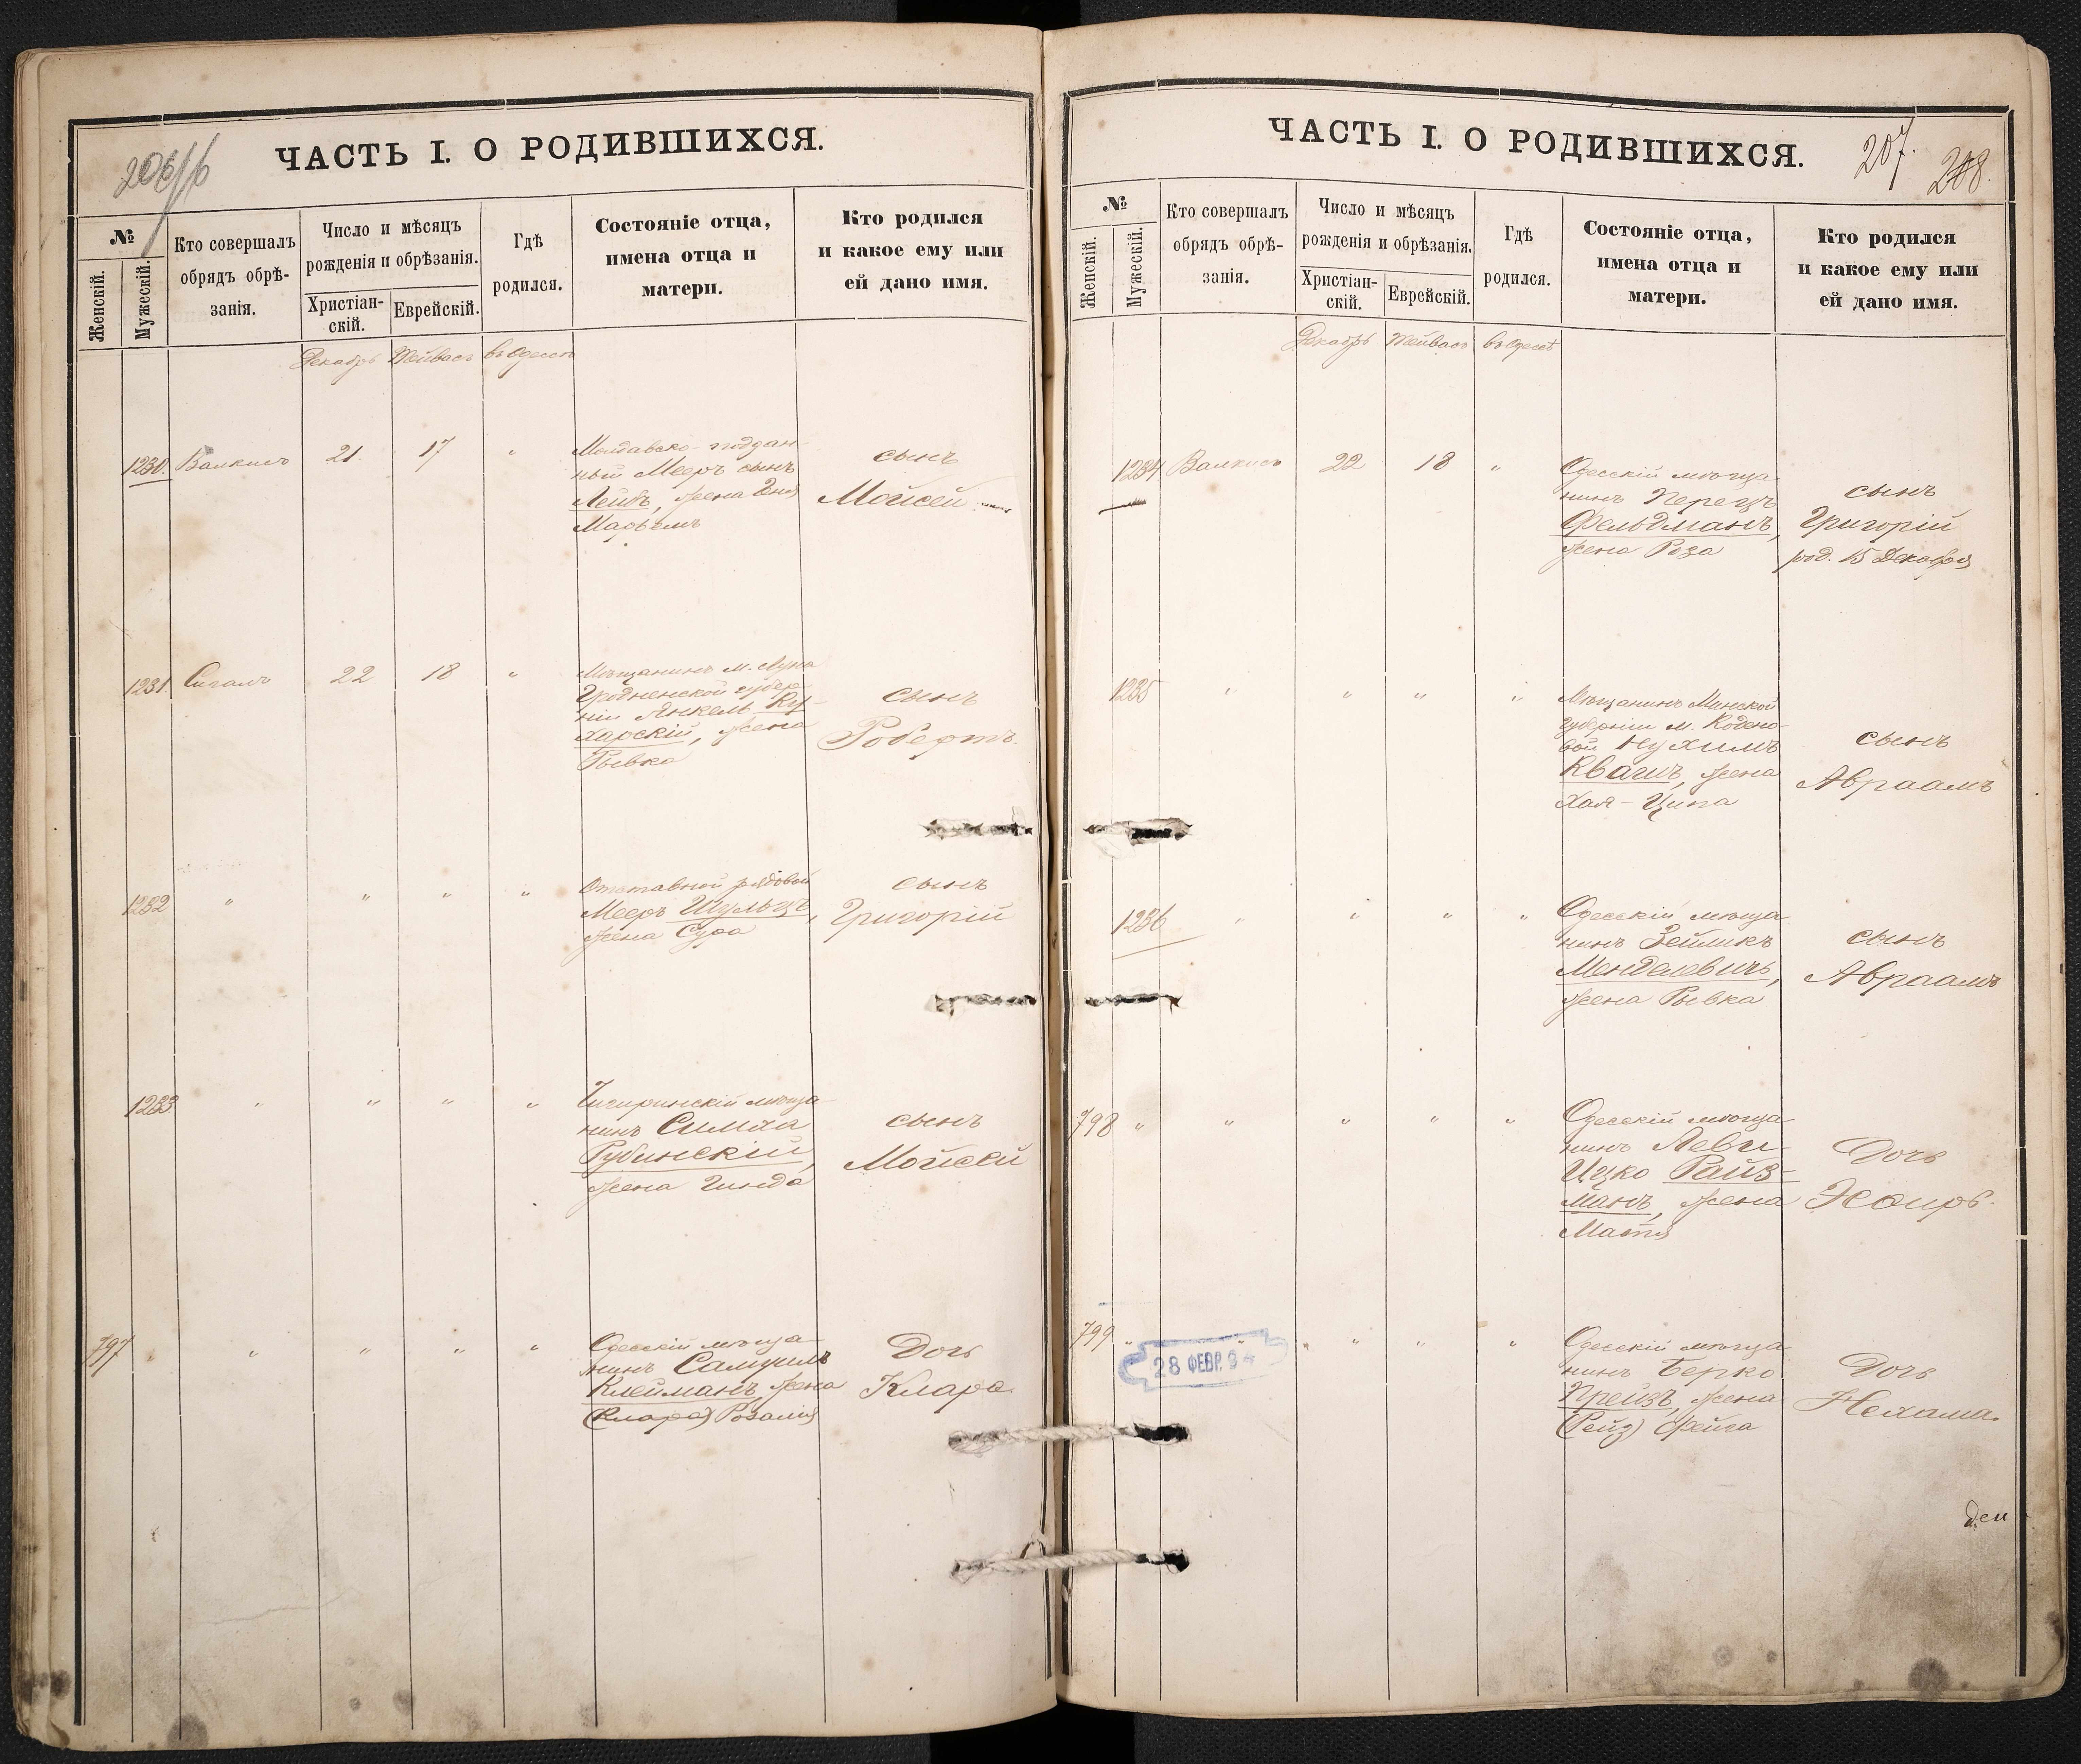 206/б
ЧАСТЬ I. О РОДИВШИХСЯ.
№
Женскій.
Мужескій.
Кто совершалъ
обрядъ обрѣ-
занія.
Число и мѣсяцъ
рожденія и обрѣзанія.
Христіан-
скій.
Еврейскій.
Гдѣ
родился.
Состояніе отца,
имена отца и
матери.
Кто родился
и какое ему или
ей дано имя.
Декабрь Тейвасъ въ Одессѣ
1230. Валкисъ 21. 17 "
Молдавско-поддан-
ный Мееръ сынъ
Лейбъ, жена Эня
Марьемъ
сынъ
Мойсей
1231. Сигалъ 22 18 "
Мѣщанинъ м. Луна
Гродненской губер-
ніи Янкель Ку-
харскій, жена
Рывка
сынъ
Робертъ.
1232 " " " "
Отставной рядовой
Мееръ Шульцъ,
жена Сура
сынъ
Григорій
1233. " " " "
Чигиринскій мѣща-
нинъ Симха
Рубинскій,
жена Гинда
сынъ
Мойсей
797 " " " " "
Одесскій мѣща-
нинъ Самуилъ
Клейманъ, жена
(Клара) Розалія
Дочь
Клара.
ЧАСТЬ I. О РОДИВШИХСЯ.
207.
208.
№
Женскій.
Мужескій.
Кто совершалъ
обрядъ обрѣ-
занія.
Число и мѣсяцъ
рожденія и обрѣзанія.
Христіан-
скій.
Еврейскій.
Гдѣ
родился.
Состояніе отца,
имена отца и
матери.
Кто родился
и какое ему или
ей дано имя.
Декабрь Тейвасъ въ Одессѣ
1234 Валкисъ 22 18 "
Одесскій мѣща-
нинъ Перецъ
Фельдманъ,
жена Роза
сынъ
Григорій
род. 15 Декабря
1235 " " " "
Мѣщанинъ Минской
губерніи м.
Нухимъ
Квашъ, жена
Хая-Ципа
сынъ
Авраамъ
1236 " " " "
Одесскій мѣща-
нинъ Зейликъ
Менделевичъ,
жена Рывка
сынъ
Авраамъ
798 " " " " "
Одесскій мѣща-
нинъ Леви-
Ицко Райз-
манъ, жена
Матля
Дочь
799 " " " " "
28 ФЕВР.
Одесскій мѣща-
нинъ Берко
Прейзъ, жена
(Рейз) Фейга
Дочь
Нехама.